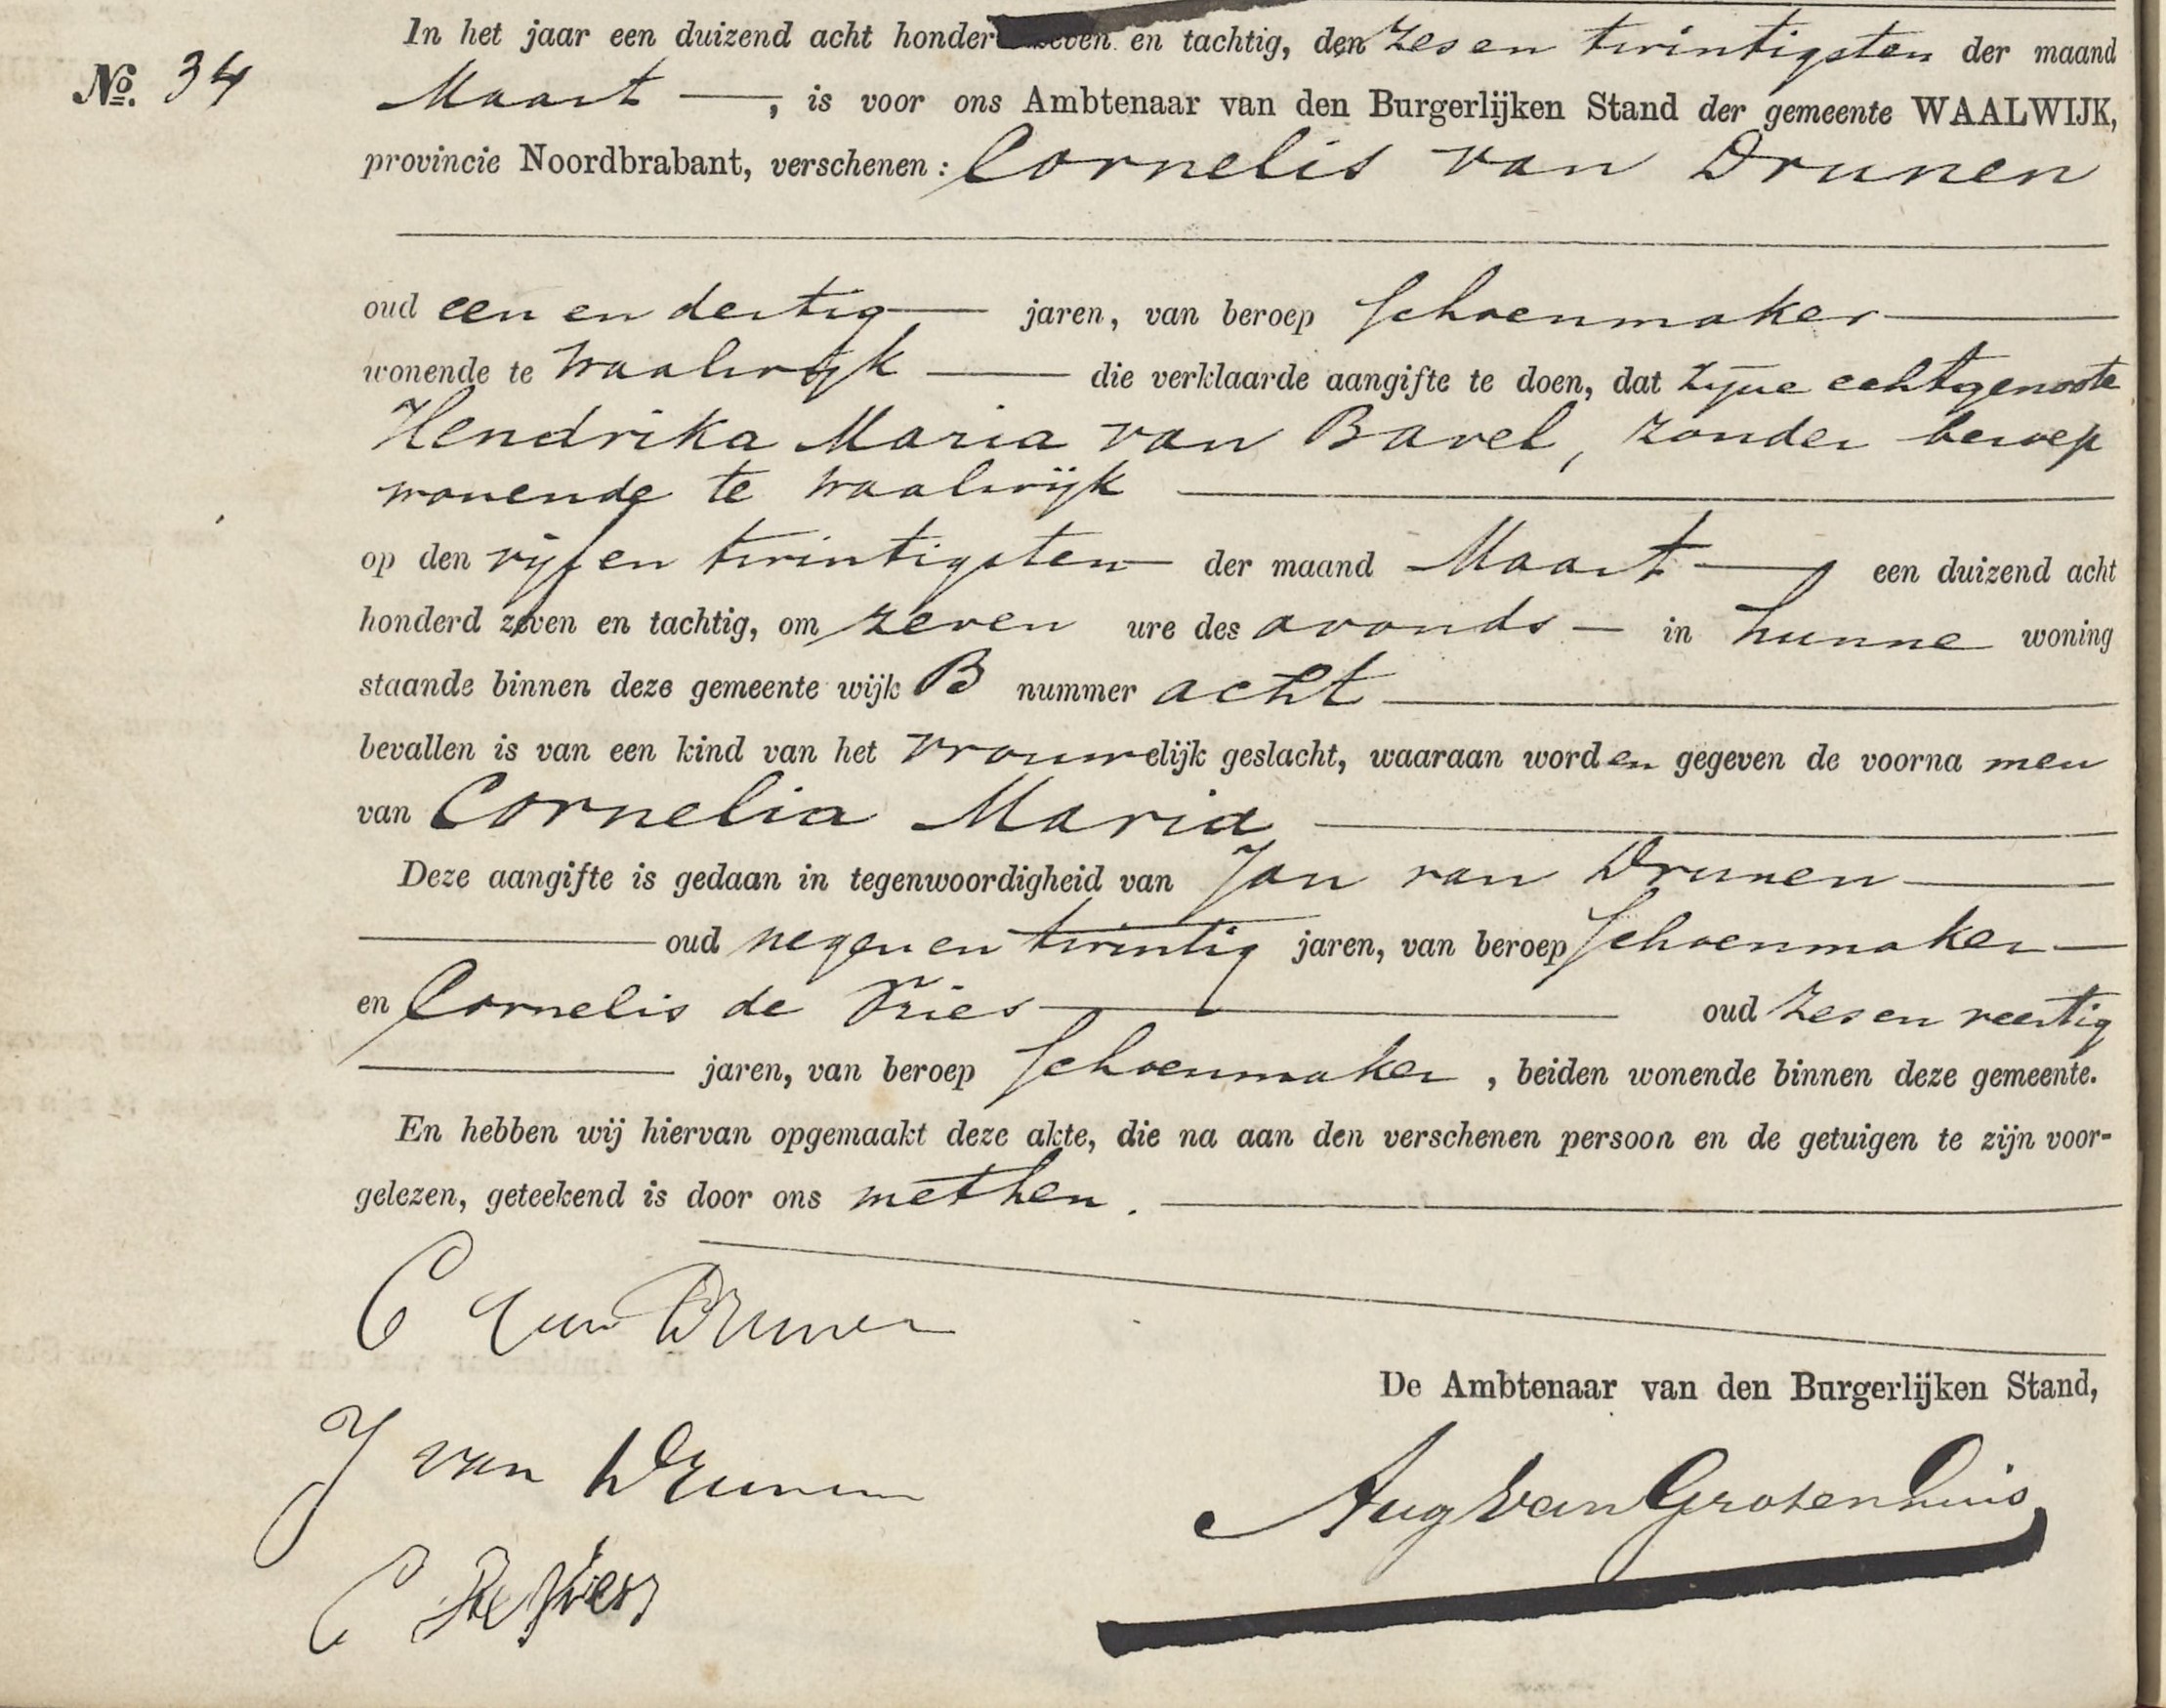 In het jaar een duizend acht honderd zeven en tachtig, den zes en twintigsten der maand
No. 34
Maart —, is voor ons Ambtenaar van den Burgerlijken Stand der gemeente WAALWIJK,
provincie Noordbrabant, verschenen: Cornelis van Drunen
oud een en dertig — jaren, van beroep Schoenmaker —
wonende te Waalwijk — die verklaarde aangifte te doen, dat zijne echtgenoote
Hendrika Maria van Bavel, zonder beroep
wonende te Waalwijk —
op den vijf en twintigsten — der maand Maart — een duizend acht
honderd zeven en tachtig, om zeven ure des avonds — in hunne woning
staande binnen deze gemeente wijk B nummer acht —
bevallen is van een kind van het vrouwelijk geslacht, waaraan worden gegeven de voorna men
van Cornelia Maria —
Deze aangifte is gedaan in tegenwoordigheid van Jan van Drunen —
— oud negen en twintig jaren, van beroep Schoenmaker —
en Cornelis de Vries — oud zes en veertig
— jaren, van beroep Schoenmaker, beiden wonende binnen deze gemeente.
En hebben wij hiervan opgemaakt deze akte, die na aan den verschenen persoon en de getuigen te zijn voor-
gelezen, geteekend is door ons met hen. —
C van Drunen
De Ambtenaar van den Burgerlijken Stand,
J van Drunen
Aug van Grotenhuis
C de Vries